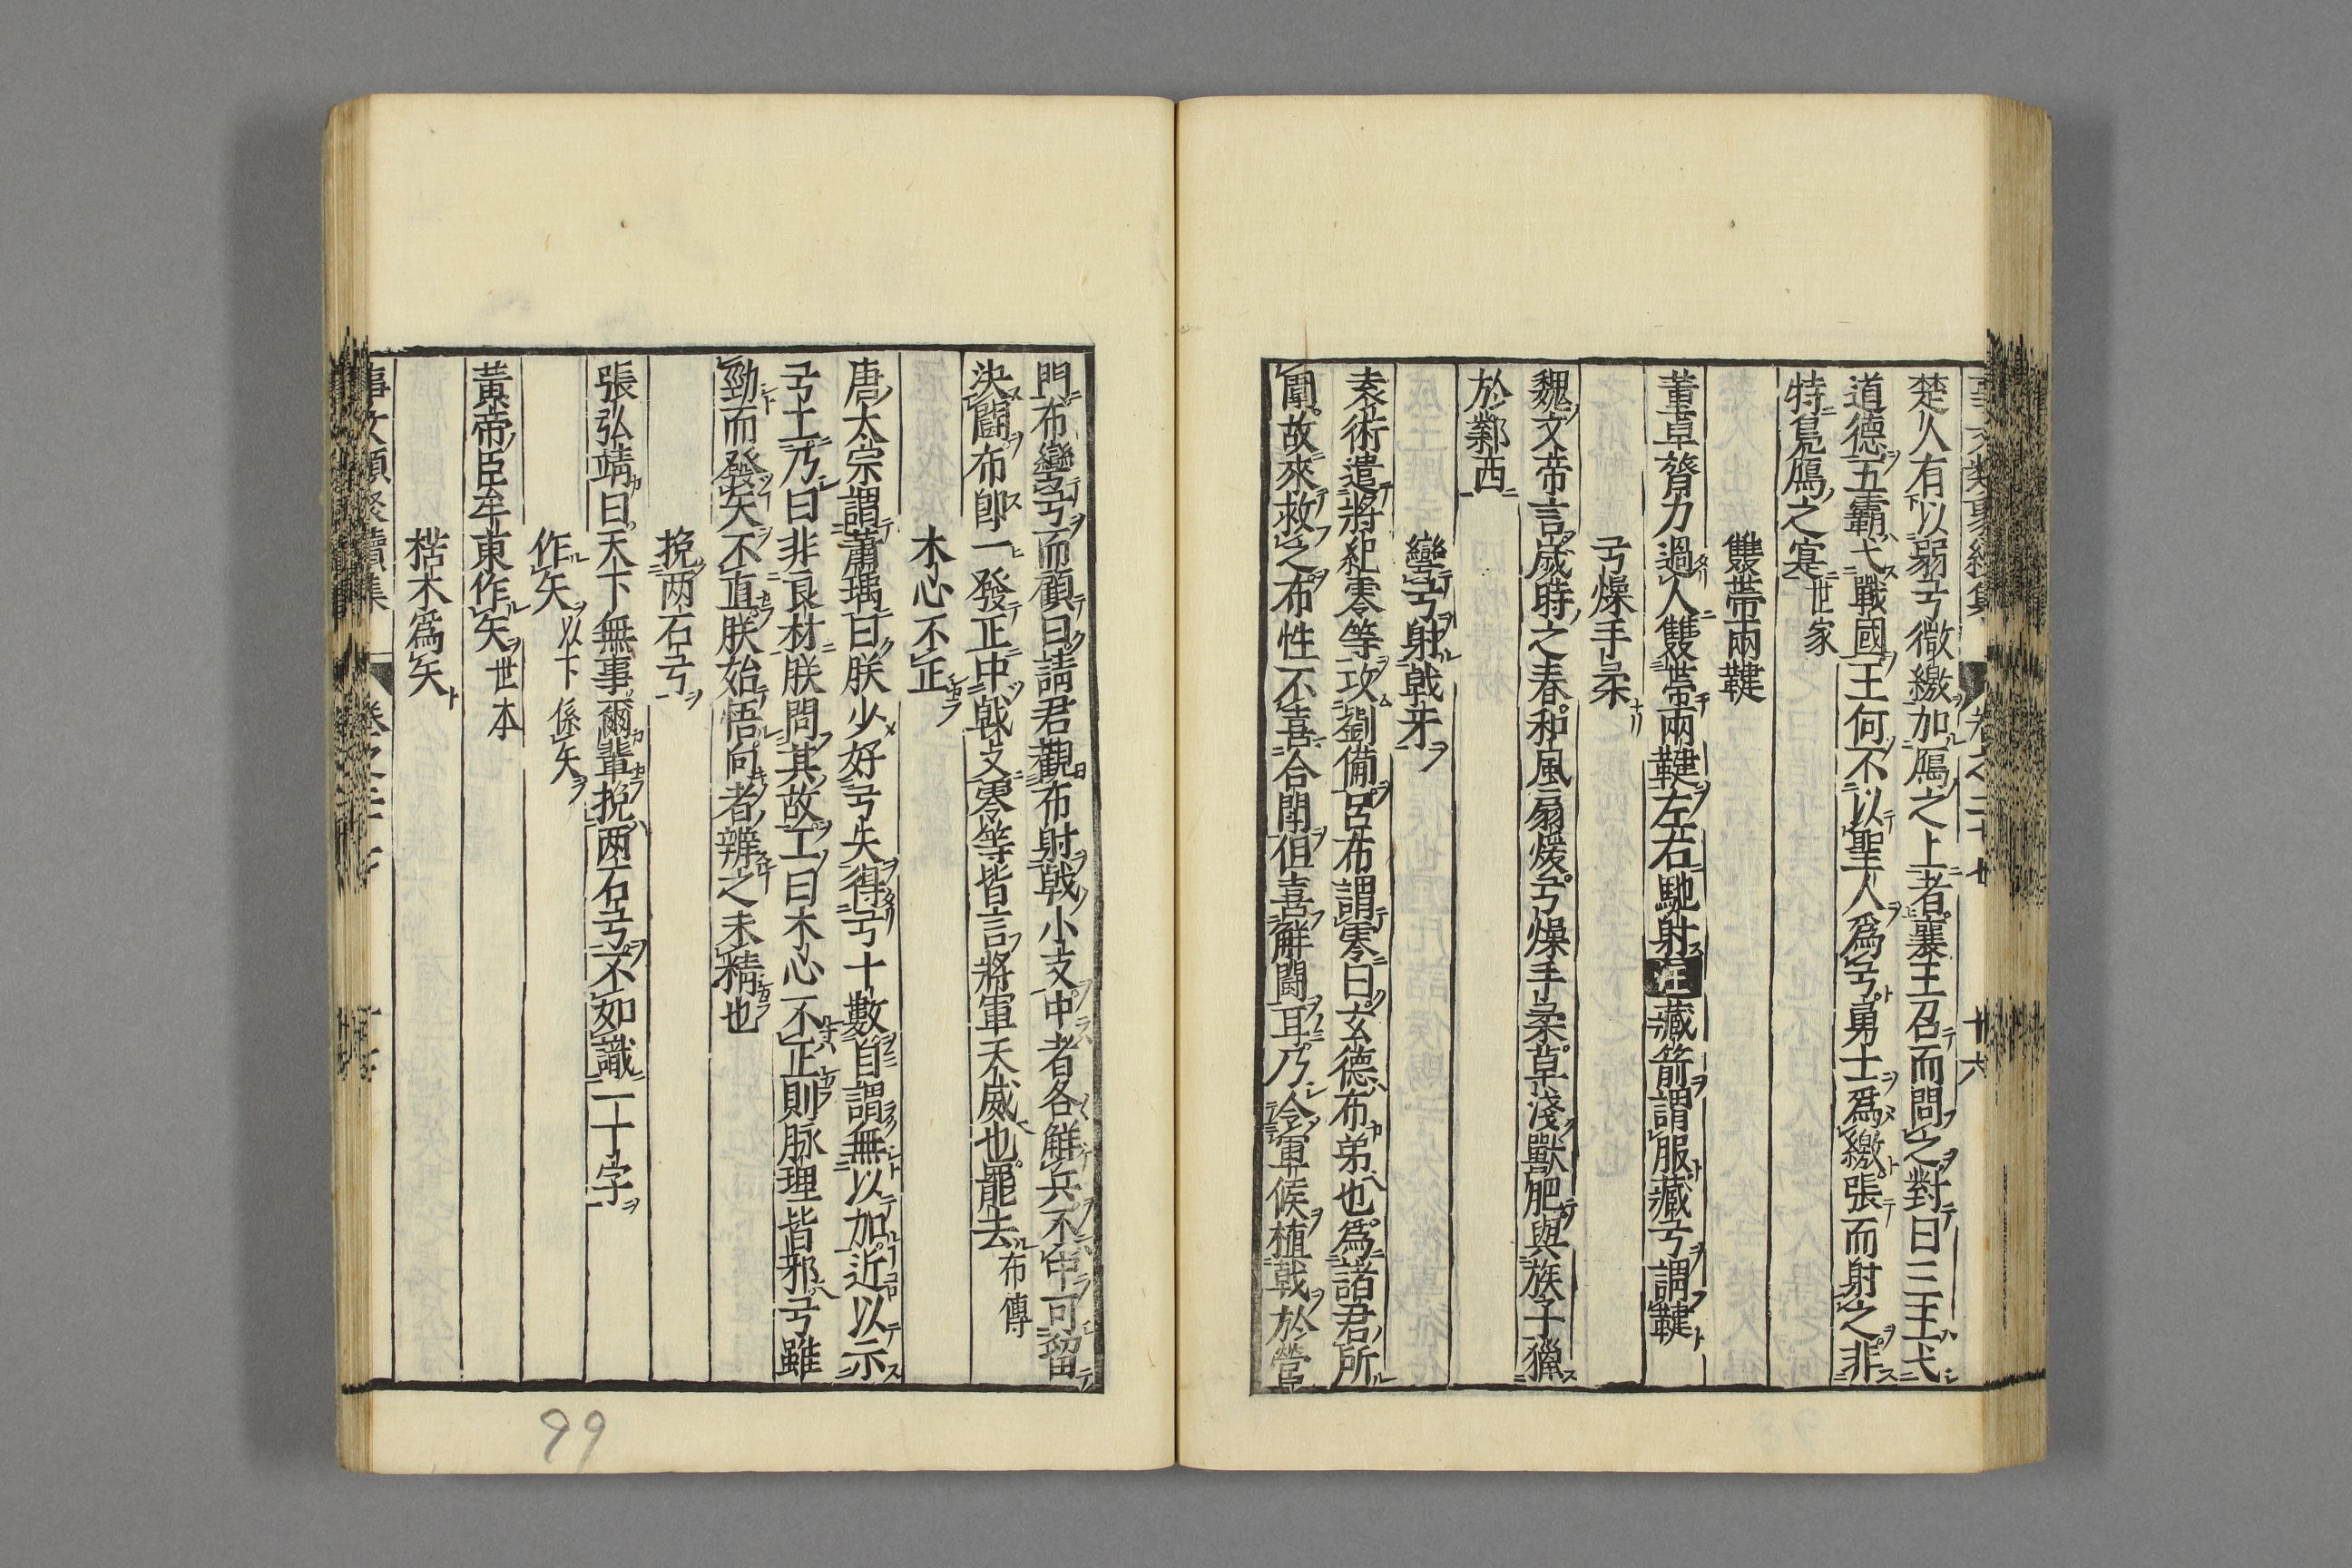 楚人有以弱弓微繳加鴈之上者襄王召而問之對曰三王弋
道德五霸弋戰國王何不以聖人爲弓勇士爲繳張而射之非
特鳧鴈之寔世家
雙帶兩鞬
董卓膂力過人雙帶兩鞬左右馳射注藏箭謂服藏弓謂鞬
弓燥手柔
魏文帝言歲時之春和風扇煖弓燥手柔草淺獸肥與族子獵
於鄴西
彎弓射戟牙
袁術遣將紀零等攻劉備呂布謂零曰玄德布弟也爲諸君所
圍故來救之布性不喜合鬪但喜解鬪耳乃令軍候植戟於營
門布彎弓而顧曰請君觀布射戟小支中者各解兵不中可留
決鬪布卽一發正中戟支零等皆言將軍天威也罷去布傳
木心不正
唐太宗謂蕭瑀曰朕少好弓矢得弓十數自謂無以加近以示
弓工乃曰非良材朕問其故工曰木心不正則脉理皆邪弓雖
勁而發矢不直朕始悟向者辨之未精也
挽两石弓
張弘靖曰天下無事爾輩挽两石弓不如識一十字
作矢以下係矢
黃帝臣牟東作矢世本
楛木爲矢
事文類聚續集 卷之二十七
99